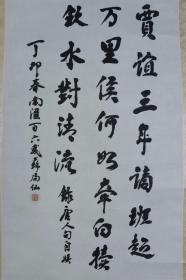 賈誼三年謫班超
万里侯何如牽白犢
飲水對清流 錄唐人句自娱
丁卯春南滙百六歲蘇局仙